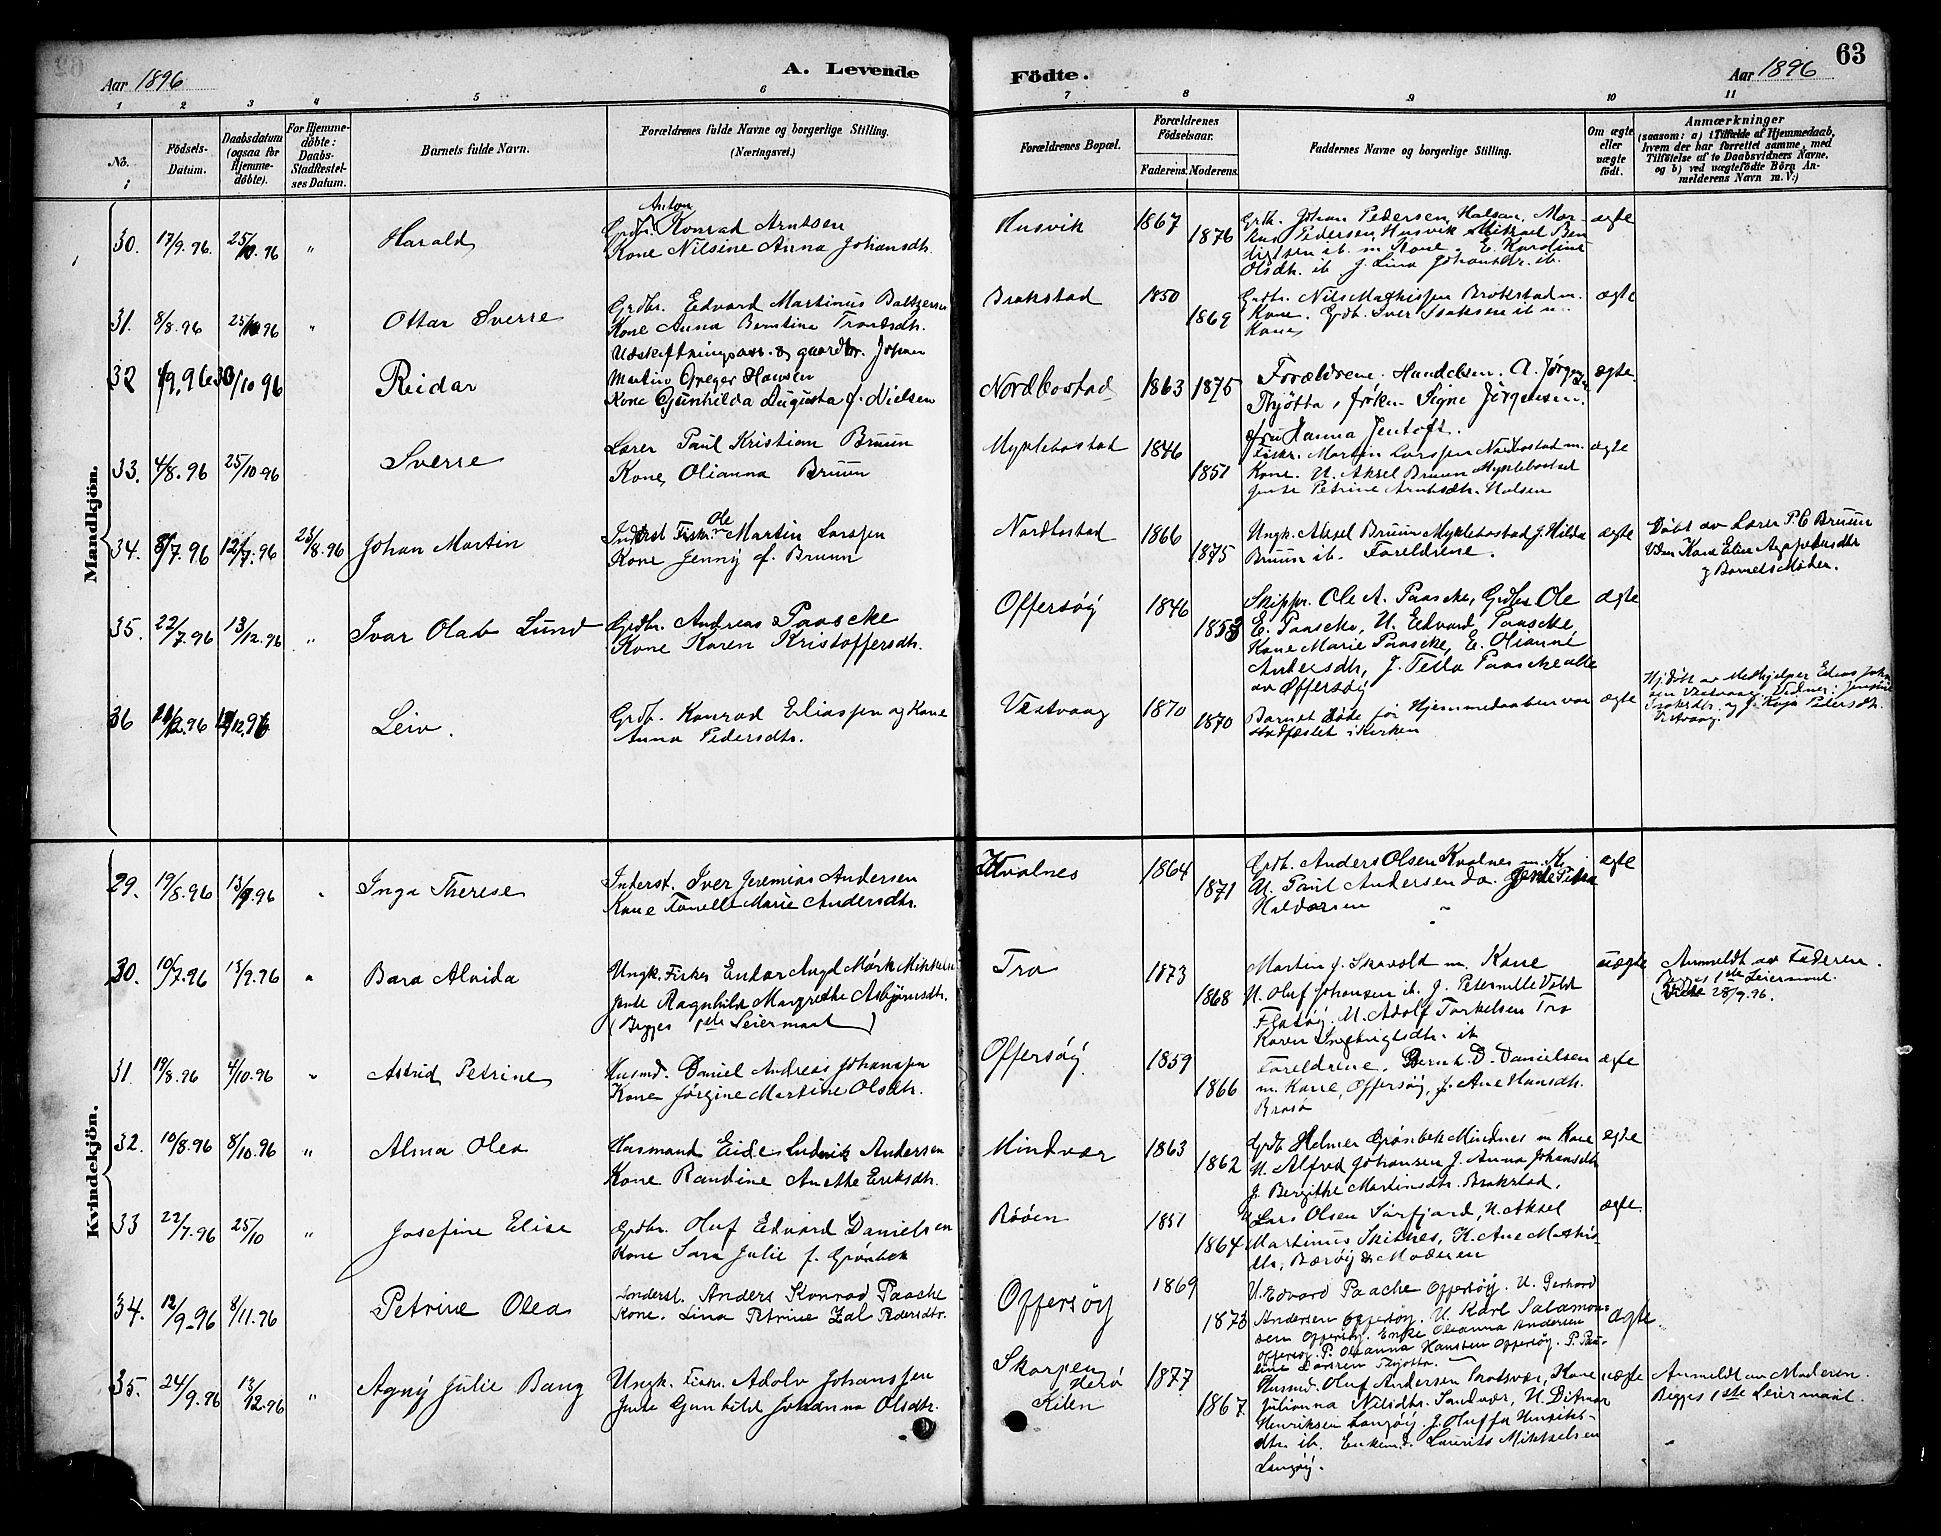 63
Aar 1896
A. Levende
Födte.
Aar 1896
1 2 3 4 5 6 7 8 9 10 11
No.
Födsels-
Datum.
Daabsdatum
(ogsaa for
Hjemme-
döbte).
For Hjemme-
döbte:
Daabs-
Stadfæstel-
ses Datum.
Barnets fulde Navn.
Forældrenes fulde Navne og borgerlige Stilling.
(Næringsvei.)
Forældrenes Bopæl.
Forældrenes
Födselsaar.
Faderens. Moderens.
Faddernes Navne og borgerlige Stilling.
Om ægte
eller
uægte
födt.
Anmærkninger
(saasom: a) i Tilfælde af Hjemmedaab,
hvem der har forrettet samme, med
Tilföielse af to Daabsvidners Navne,
og b) ved uægtefödte Börn An-
melderens Navn m. V.)
Mandkjön.
30. 17/9.96. 25/10.96 " Harald
Anton
Grdbr. Konrad Arntsen
Kone Nilsine Anna Johansdtr.
Husvik 1867 1876
Grdb. Johan Pedersen Halsan, Mar-
kus Pedersen Husvik Mikael Ben
digtsen ib. m Kone. E. Kardine
Olsdtr. ib. J. Lina Johansdr. ib.
ægte
31. 8/8.96 25/10 96 " Ottar Sverre
Grdbr. Edvard Martinus Baltzersen
Kone Anna Berntine Trondsdtr.
Brakstad 1850 1869
Grdbr. Nils Mathissen Brakstad m.
Kone. Grdb. Iver Isaksen ib m.
Kone,
ægte
32 1/9.96 30/10 96 Reidar
Udskiftningsass. & gaardbr. Johan
Martin Greger Hansen
Kone Gunhilda Augusta f. Nielsen
Nordbostad 1863 1875
Forældrene. Handelsm. A. Jørgensen
Thjøtta, frøken Signe Jörgensen.
fru Hanna Jentoft.
ægte.
33. 4/8.96 25/10 96 Sverre
Lærer Paul Kristian Bruun
Kone Olianna Bruun
Myklebostad 1846 1851
Fiskr. Martin Larssen Nordbostad m.
Kone. U. Aksel Bruun Myklebostad
Jente Petrine Arntsdtr. Halsen
ægte
34. 8/7 96 12/7.96 23/8.96 Johan Martin
Inderst Fiskr. Ole Martin Larssen
Kone Jenny f. Bruun
Nordbostad 1866 1875
Ungk. Aksel Bruun Myklebostad J. Hilda
Bruun ib. Foreldrene.
ægte
Döbt av Lærer P. C Bruun
Vidn Kone Elen Agapetusdtr
g Barnets Moder.
35. 22/7.96 13/12.96 " Ivar Olab Lund
Grdbr. Andreas Paascke
Kone Karen Kristoffersdtr.
Offersøy 1846 1853
Skippr. Ole A. Paascke, Grdbr Ole
E. Paascke, U. Edvard Paascke
Kone Marie Paascke, E. Olianne
Andersdtr, J. Tella Paascke alle
av Offersøy
ægte
36 96 12.96 Leiv.
Grdb. Konrad Eliassen og Kone
Anna Pedersdtr.
Vestvaag 1870 1870
Barnet döde før Hjemmedaaben var
stadfæstet i Kirken
ægte
Hj.döbt av Medhjelper Edias Joha
sen Vestvaag. Vidner: Jensine
Isaksdtr. og J. Kaja Pedersdtr.
Vestvaag.
Kvindekjön.
29. 19/8.96 13/9.96 " Inga Therese
Inderst. Iver Jeremias Andersen
Kone Tonelle Marie Andersdtr.
Kvalnes 1864 1871
Grdb. Anders Olsen Kvalnes m. K.
U. Paul Andersen do. Jente Petra
Haldorsen
ægte
30. 10/7.96 13/9.96 " Bara Alvida
Ungk. Fisker Enkar Angel Mörk Mikkelsen
Jente Ragnhild Margrethe Asbjörnsdtr.
(Begges 1ste Leiermaal)
Tro 1873 1868
Martin J. Skavold m. Kone
U. Oluf Johansen ib. J. Peternille Vold
Flatøy. U. Adolf Torkelsen Tro
Karen Ingebrigtsdtr. ib
uægte
Anmeldt av Faderen.
Begges 1ste Leiermaal.
(Viede 28/9.96.
31. 19/8.96 4/10.96 " Astrid Petrine
Husmd. Daniel Andreas Johanssen
Kone Jørgine Martine Olsdtr.
Offersöy. 1859 1866
Foreldrene, Bernh. D. Danielsen
m. Kone, Offersøy, J. Ane Hansdtr.
Brasø
ægte
32. 10/8.96 8/10.96 " Alma Olea
Husmand Eide Ludvik Andersen
Kone Randine Anethe Eriksdtr.
Mindvær 1863 1862
Grdb Helmer Grønbek Mindnes m Kone
U. Alfred Johansen J. Anna Johansdtr
J. Bergithe Martinsdtr. Brakstad.
egte
33 22/7.96 25/10 " Josefine Elise
Grdbr. Oluf Edvard Danielsen
Kone Sara Julie f. Grønbek
Röóen 1851 1864
Lars Olsen Sørfjord, U. Aksel
Martinus Skitnes, K. Ane Mathis-
dtr, Bærøy & Moderen
ægte.
34. 12/9-96 8/11.96 Petrine Olea
Inderst. Anders Konrad Paasche
Kone. Lina Petrine Zal Pedersdtr.
Offersøy 1869 1873
U. Edvard Paache Offersøy. U. Gerhard
Andersen Offersøy. U. Karl Salamon-
sen Offersøy. Enke Oleanna Andersen
Offersøy. P. Oleanna Hansten Offersøy. P. Pau-
line Larsen Thjøtta.
ægte.
35. 24/9.96 13/12.96 " Agny Julie Bang
Ungk. Fiskr. Adolv Johanssen
Jente Gunhild Johanna Olsdtr.
Skarpen
Herø
Kilen
1877 1867
Husmd. Oluf Andersen Brotsvær, Kone
Julianna Nilsdtr. Sandvær, U. Ditmar
Henriksen Langøy. J. Oluffa Henriks-
dtr. ib. Enkemd. Laurits Mikkelsen
Langøy.
uægte
Anmeldt av Moderen.
Begges 1ste Leiermaal.